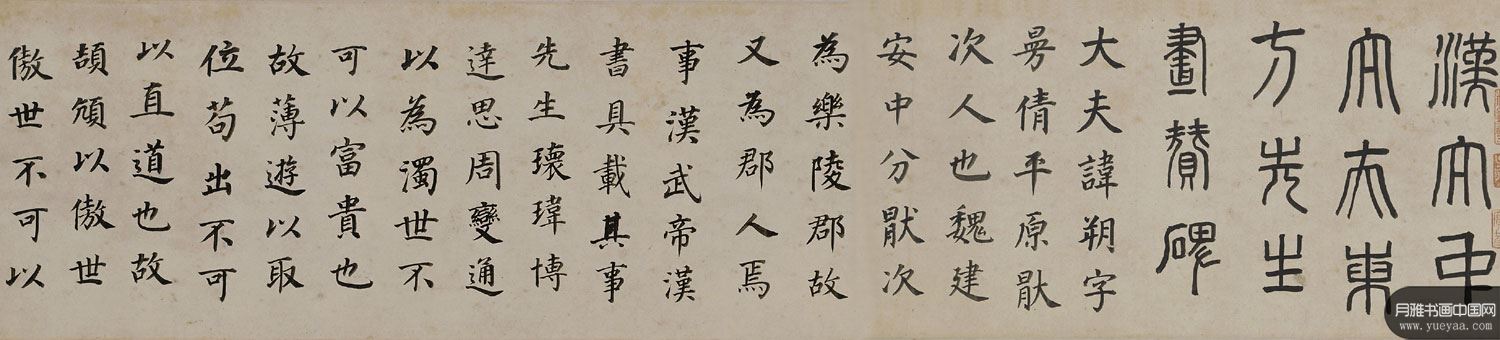 漢大中
大夫東
方先生
畫贊碑
大夫諱朔字
曼倩平原猒
次人也魏建
安中分猒次
為樂陵郡故
又為郡人焉
事漢武帝漢
書具載其事
先生瓌瑋博
達思周變通
以為濁世不
可以富貴也
故薄遊以取
位苟出不可
以直道也故
頡頏以傲世
傲世不可以
月雅书画中国网
www.yueyaa.com